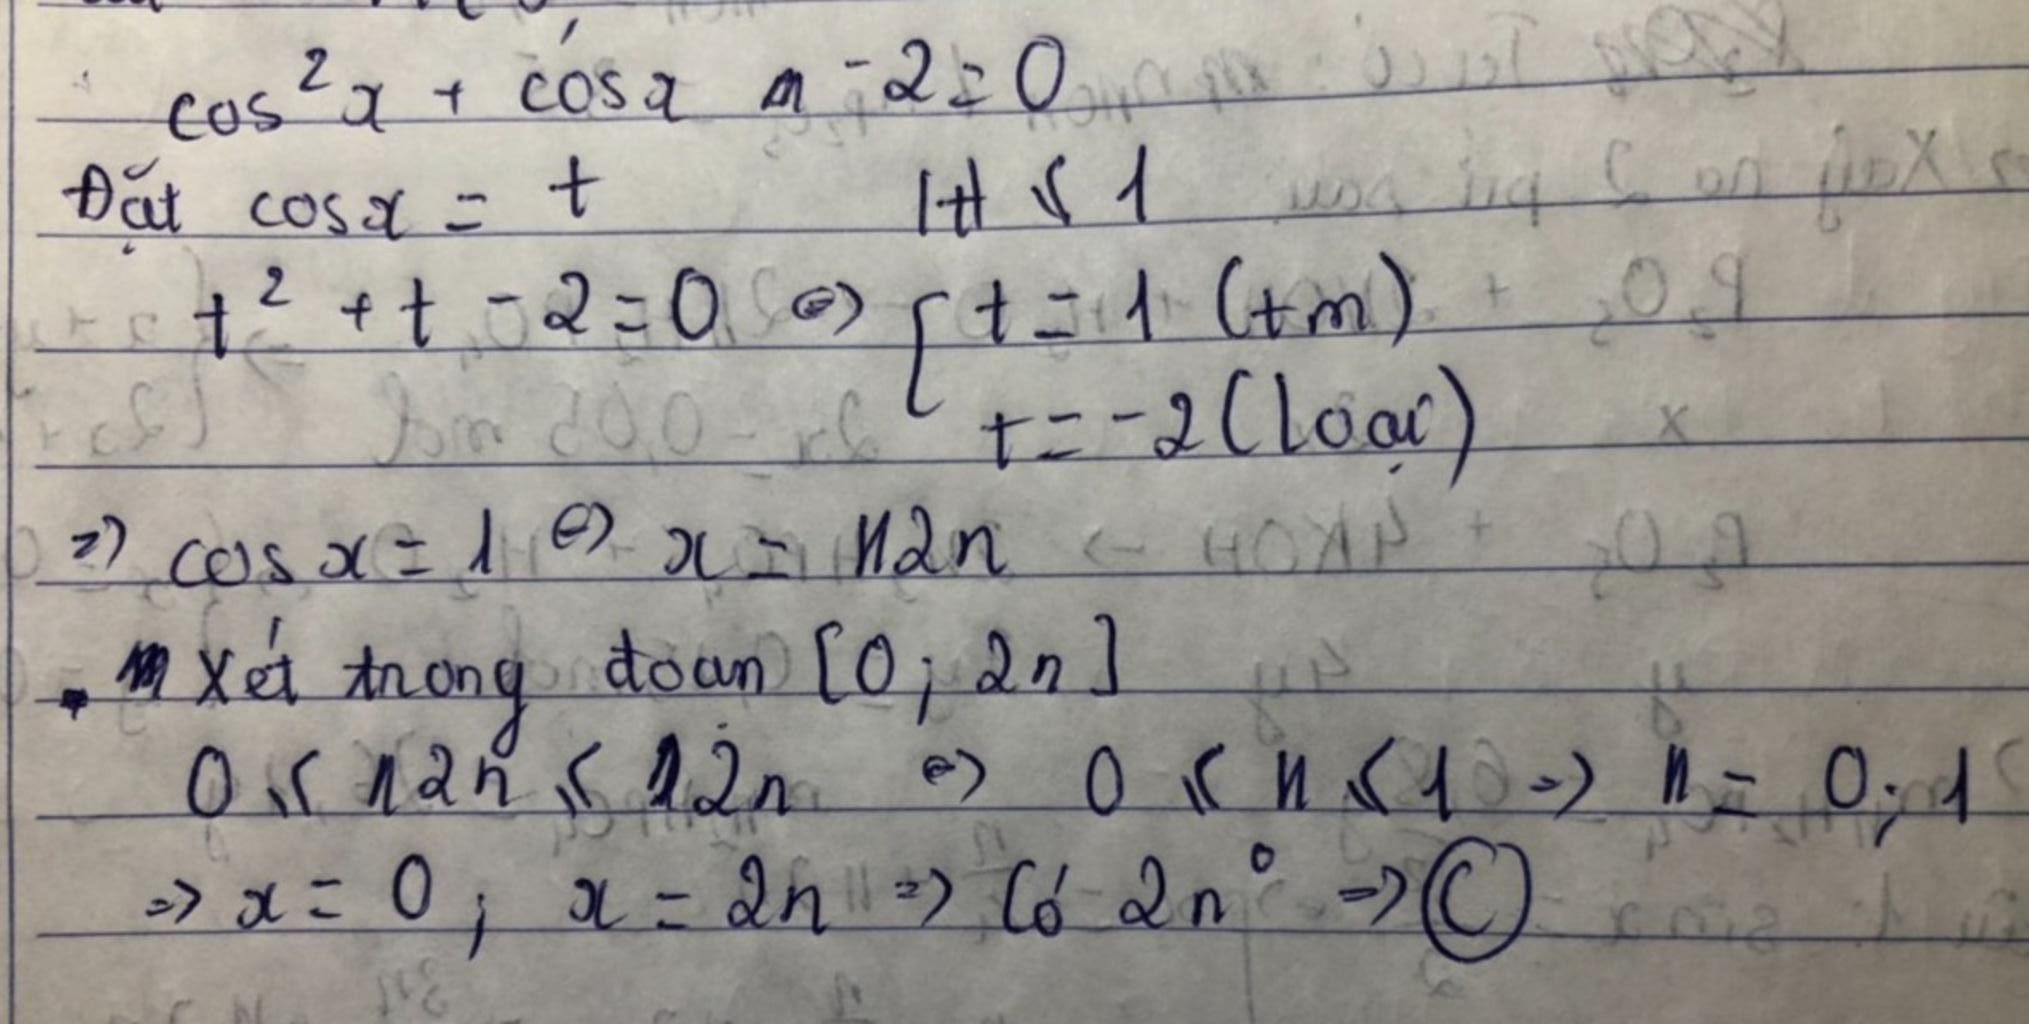 cos²x + cosx - 2 = 0
Đặt cosx = t |t| ≤ 1
t² + t - 2 = 0 ⇔ [ t = 1 (tm)
t = -2 (loại)
=> cosx = 1 ⇔ x = n2π
Xét trong đoan [0; 2π]
0 ≤ n2π ≤ 2π ⇔ 0 ≤ n ≤ 1 => n = 0; 1
=> x = 0; x = 2π => Có 2n° => C